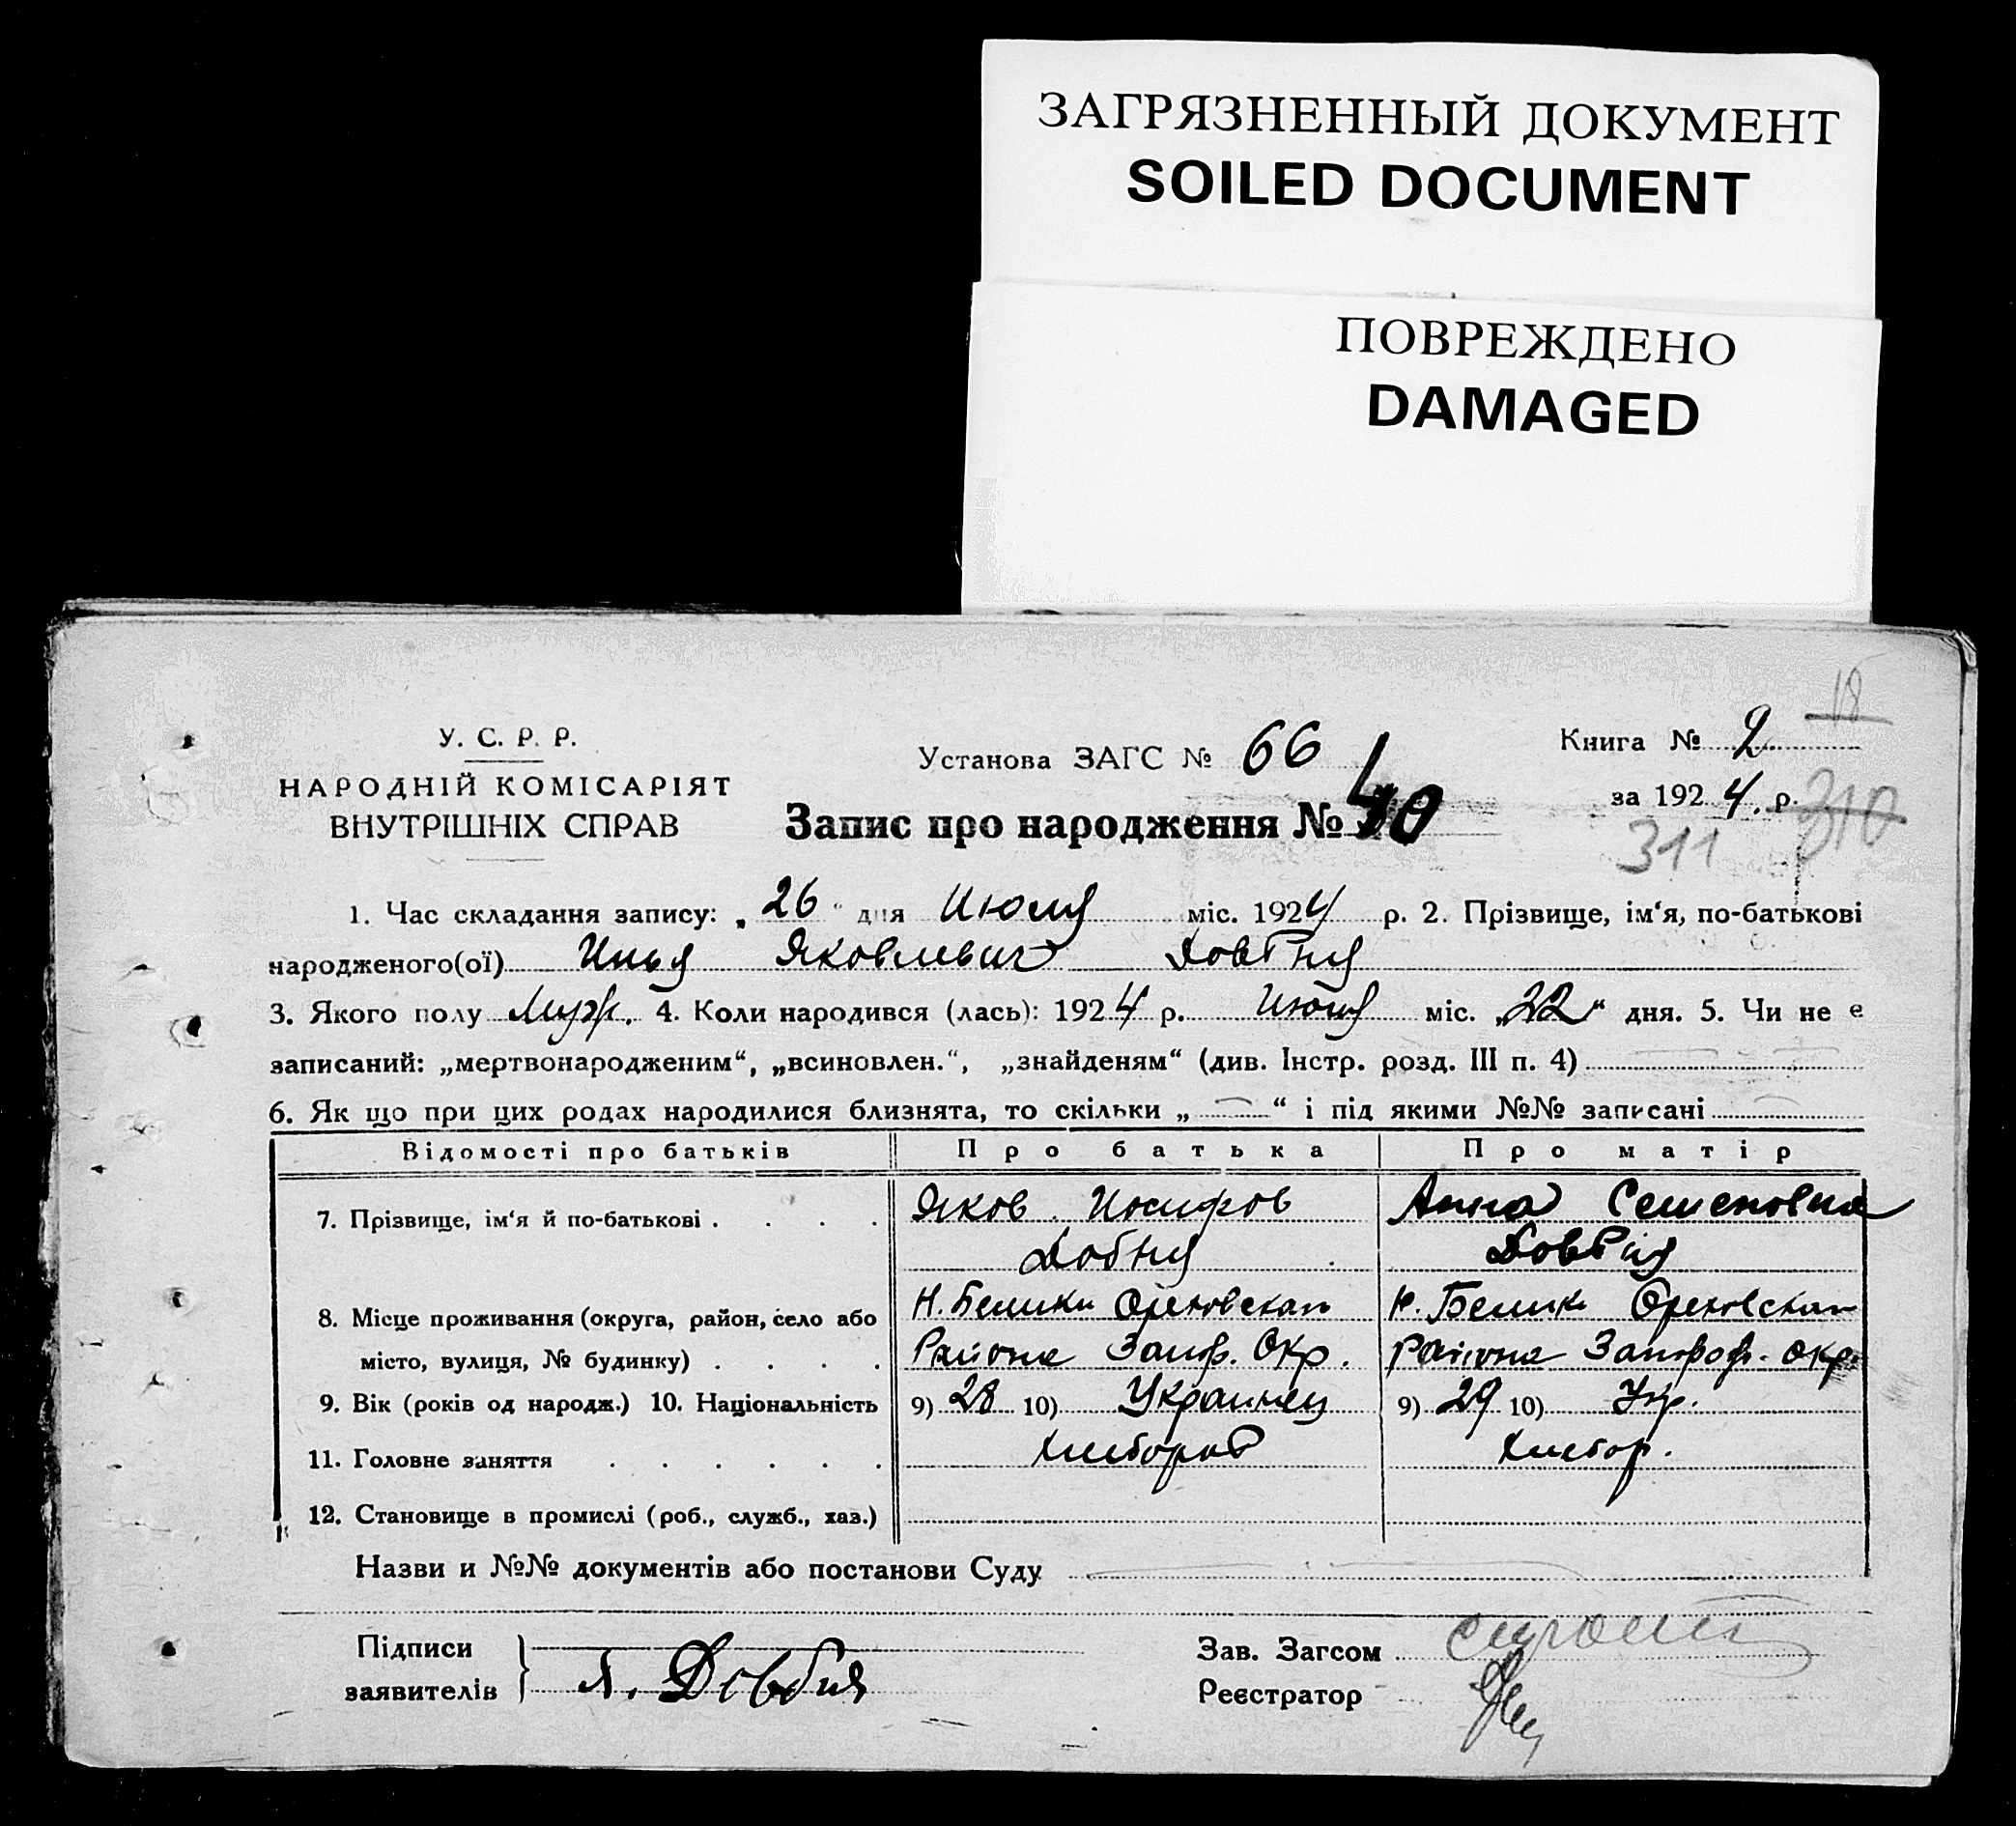 ЗАГРЯЗНЕННЫЙ ДОКУМЕНТ
SOILED DOCUMENT
ПОВРЕЖДЕНО
DAMAGED
18
У. С. Р. Р.
НАРОДНІЙ КОМІСАРІЯТ
ВНУТРІШНІХ СПРАВ
Установа ЗАГС № 66
Книга № 2
за 1924. р. 310
311
Запис про народження №
1. Час складання запису: „26“ дня Июля міс. 1924 р. 2. Прізвище, ім‘я, по-батькові
народженого(ої) Илья Яковлевич Довбня
3. Якого полу Муж. 4. Коли народився (лась): 1924 р. Июля міс. „22“ дня. 5. Чи не є
записаний: „мертвонародженим“, „всиновлен.“, „знайденям“ (див. Інстр. розд. III п. 4)
6. Як що при цих родах народилися близнята, то скільки „ — “ і під якими №№ записані —
Відомості про батьків Про батька Про матір
7. Прізвище, ім‘я й по-батькові . . . . Яков Иосифов Анна Семеновна
Довбня Довбня
8. Місце проживання (округа, район, село або Н. Белики Ореховскаго Н. Белики Ореховскаго
місто, вулиця, № будинку) . . . . Района Запор. Окр. Района Запорож. Окр.
9. Вік (років од народж.) 10. Національність 9) 28 10) Украинец 9) 29 10) Укр.
11. Головне заняття . . . . . . Хлебороб Хлебор.
12. Становище в промислі (роб., служб., хаз.)
Назви и №№ документів або постанови Суду
Підписи
заявителів Я. Довбня
Зав. Загсом
Реєстратор